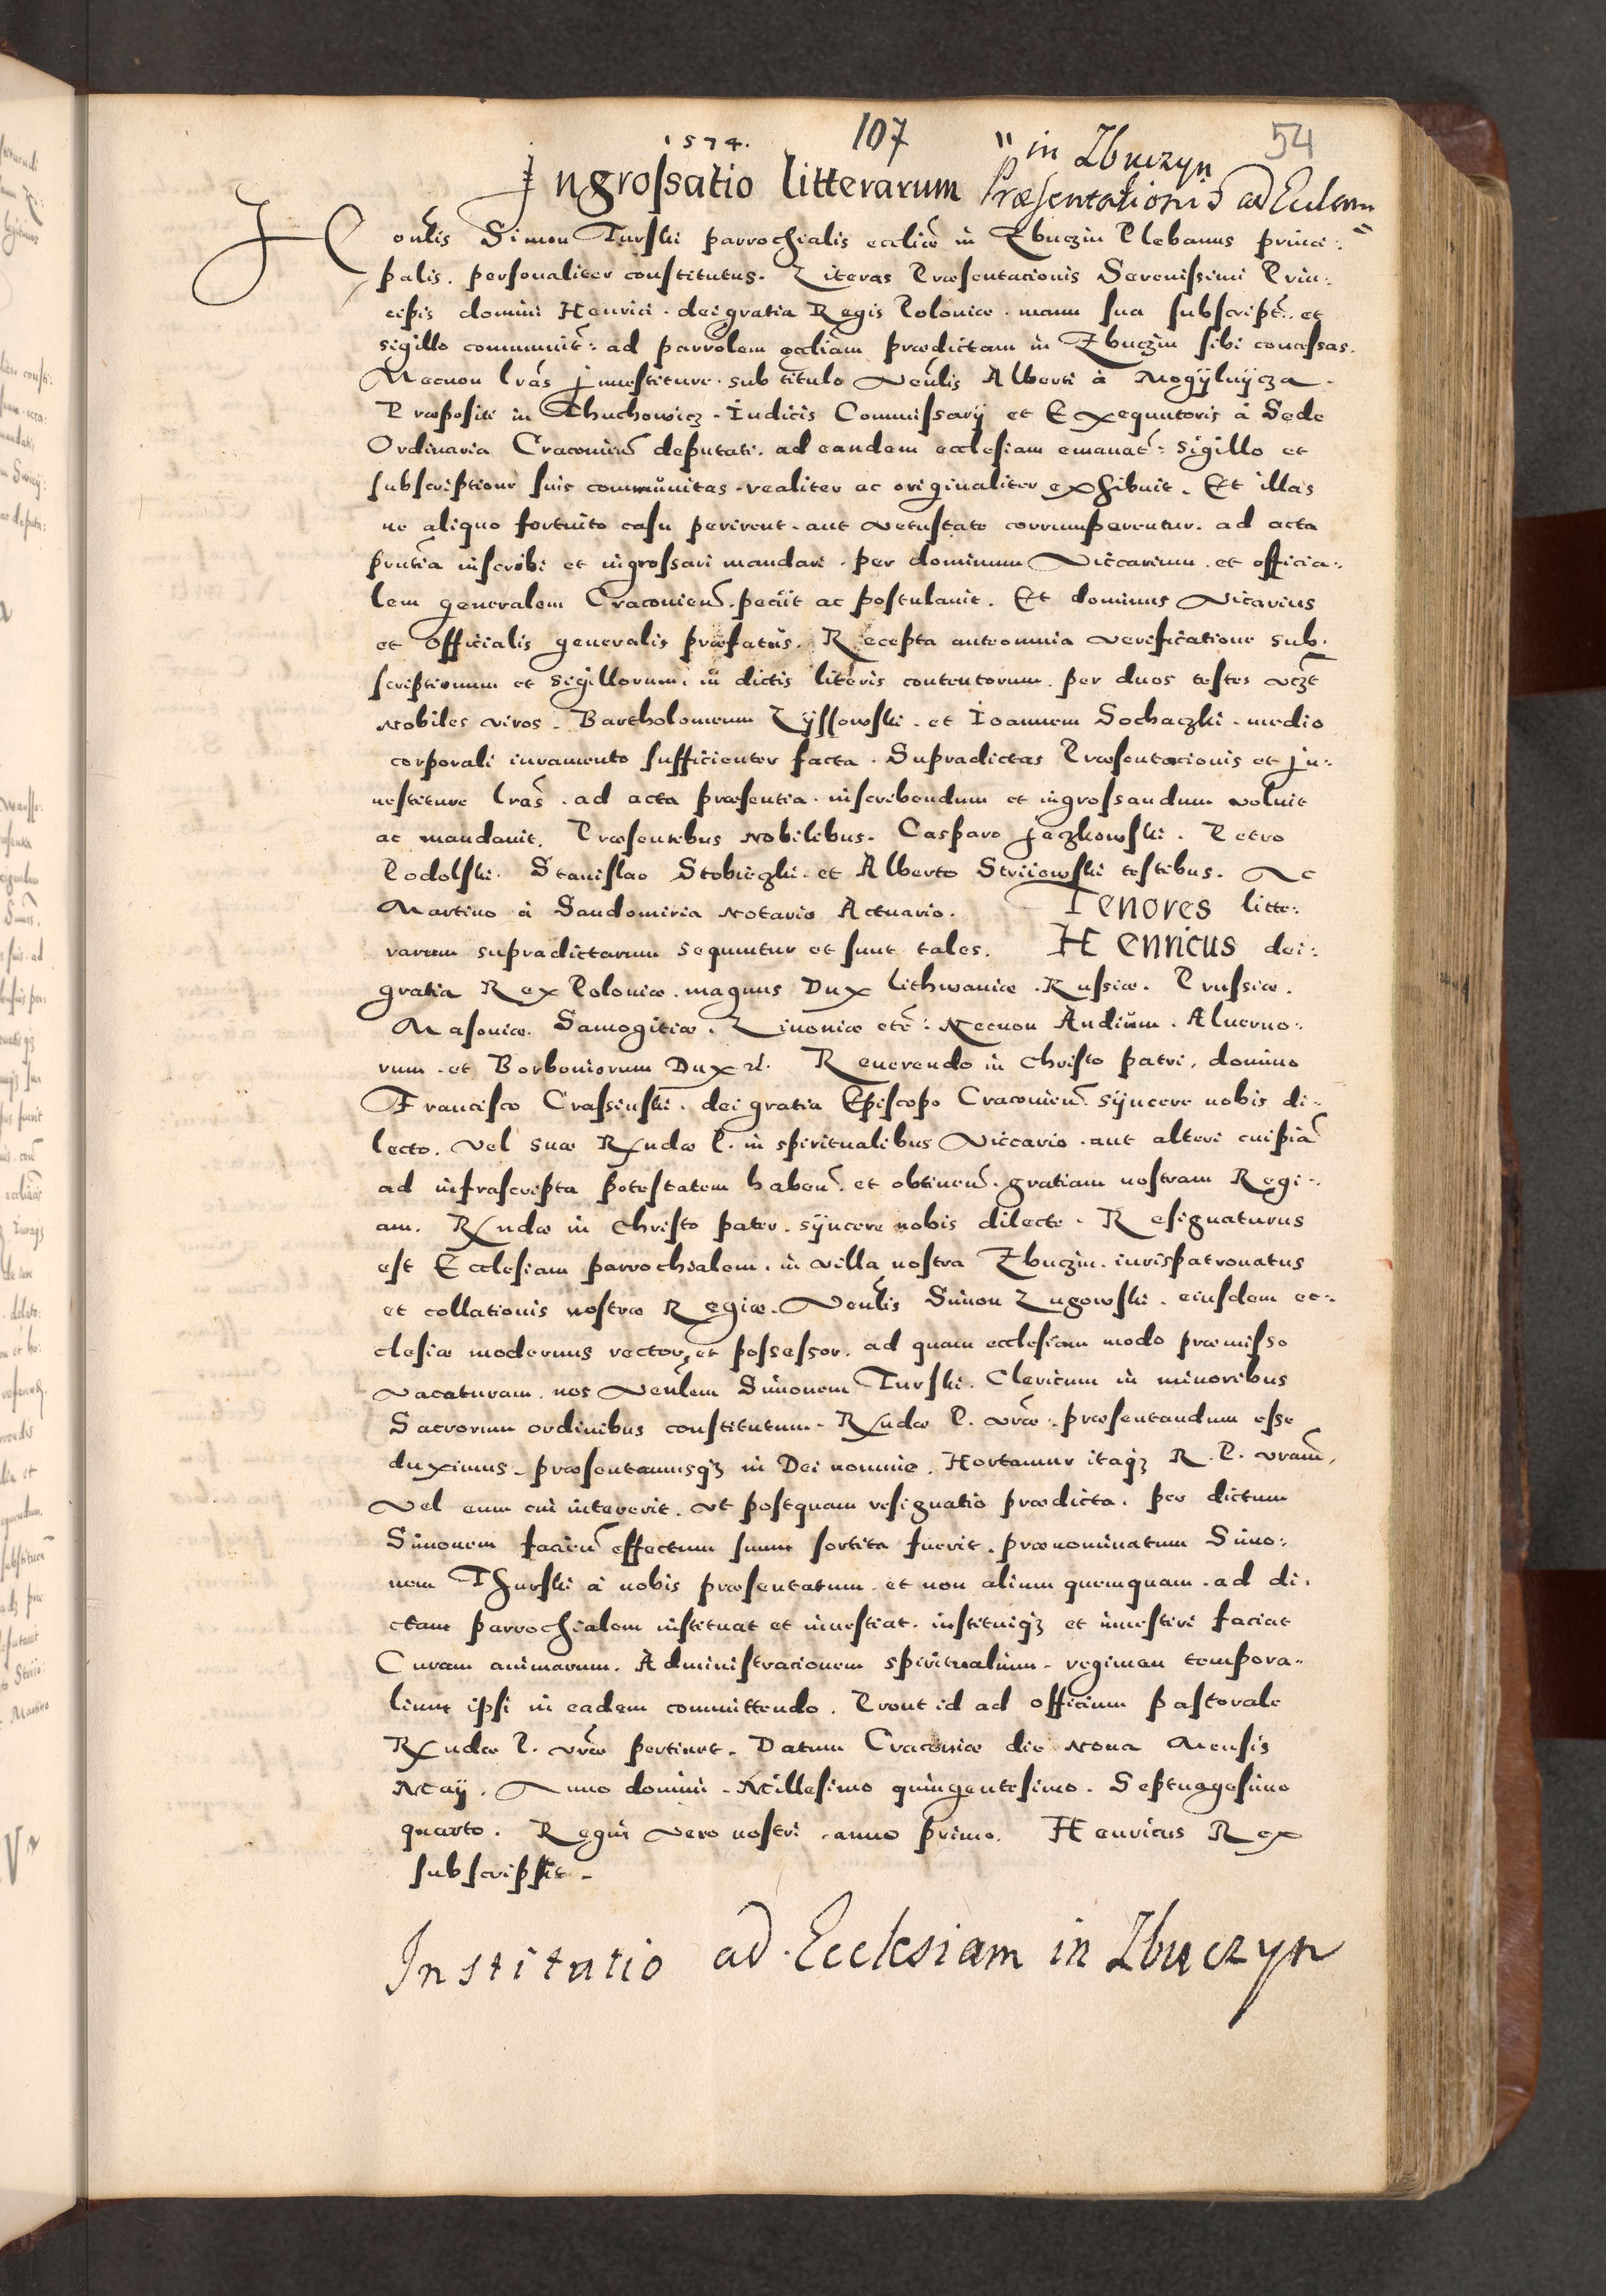 1574.
107
54
" in Zbuczyn
Ingrossatio litterarum Præsentationis ad Ecclam "
Honlis Simon Turski parrochialis eccliæ in Zbuczin Plebanus princi:
palis. personaliter constitutus. Literas Præsentacionis Serenissimi Prin:
cipis domini Henrici. dei gratia Regis Poloniæ. manu sua subscript. et
sigillo communit: ad parrolem eccliam prædictam in Zbuczin sibi concessas.
Necnon lras Inuestiture. sub titulo Venlis Alberti à Mogÿlnÿcza.
Præpositi in Chuchowicz. Iudicis Commissarÿ et Exequutoris à Sede
Ordinaria Cracouien deputati. ad eandem ecclesiam emanat: sigillo et
subscriptione suis communitas. realiter ac originaliter exhibuit. Et illas
ne aliquo fortuito casu perirent. aut vetustate corrumperentur. ad acta
prntia inscribi et ingrossari mandari. per dominum Viccarium. et officia:
lem generalem Cracouien. peciit ac postulauit. Et dominus Vicarius
et Officialis generalis præfatus. Recepta ante omnia verificatione sub.
scriptionum et sigillorum. in dictis literis contentorum. per duos testes vzt
Nobiles viros. Bartholomeum Lÿssowski. et Ioannem Sochaczki. medio
corporali iuramento sufficienter facta. Supradictas Præsentacionis et In:
uestiture lras. ad acta præsentia. inscribendum et ingrossandum voluit
ac mandauit. Præsentibus Nobilibus. Casparo Jaczkowski. Petro
Podolski. Stanislao Stobieczki. et Alberto Striiowski testibus. Ac
Martino à Sandomiria Notario Actuario. Tenores litte:
rarum supradictarum sequuntur et sunt tales. Henricus dei:
gratia Rex Poloniæ. magnus Dux Lithwaniæ. Russiæ. Prussiæ.
Masoniæ. Samogitiæ. Liuoniæ etc: Necnon Andium. Aluerno:
rum. et Borboniorum Dux etc. Reuerendo in Christo patri, domino
Francisco Crassinski. dei gratia Episcopo Cracouien. sÿncere nobis di:
lecto. vel suæ Rxndæ P. in spiritualibus Viccario. aut alteri cuipiā
ad infrascripta potestatem haben. et obtinen. gratiam nostram Regi:
am. Rxndæ in Christo pater. sÿncere nobis dilecte. Resignaturus
est Ecclesiam parrochialem. in villa nostra Zbuczin. iurispatronatus
et collationis nostræ Regiæ. Venlis Simon Lugowski. eiusdem ec:
clesiæ modernus rector, et possessor. ad quam ecclesiam modo præmisso
vacaturam. nos Venlem Simonem Turski. Clericum in minoribus
Sacrorum ordinibus constitutum. Rxndæ P. vræ. præsentandum esse
duximus. præsentamusqz in Dei nomine. Hortamur itaqz R. P. vram,
vel eum cui intererit. vt postquam resignatio prædicta. per dictum
Simonem facien effectum suum sortita fuerit. prænominatum Simo:
nem Thurski à nobis præsentatum. et non alium quemquam. ad di.
ctam parrochialem instituat et inuestiat. instituiqz et inuestiri faciat
Curam animarum. Administracionem spiritualium. regimen tempora.
lium ipsi in eadem committendo. Prout id ad officium pastorale
Rxndæ P. vræ pertinet. Datum Cracouiæ die Nona Mensis
Maÿ. Anno domini. Millesimo quingentesimo. Septuagesimo
quarto. Regni vero nostri. anno primo. Henricus Rex
subscripsit.
Institutio ad Ecclesiam in Zbuczyn